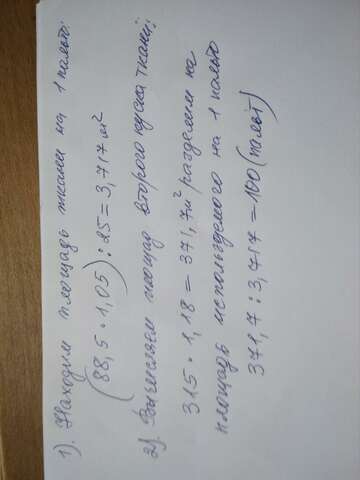 1). Находим площадь ткани на 1 пальто:
(88,5 · 1,05) : 25 = 3,717 м²
2). Вычисляем площад второго куска ткани:
315 · 1,18 = 371,7 м² разделим на
площадь используемого на 1 пальто
371,7 : 3,717 = 100 (пальт)